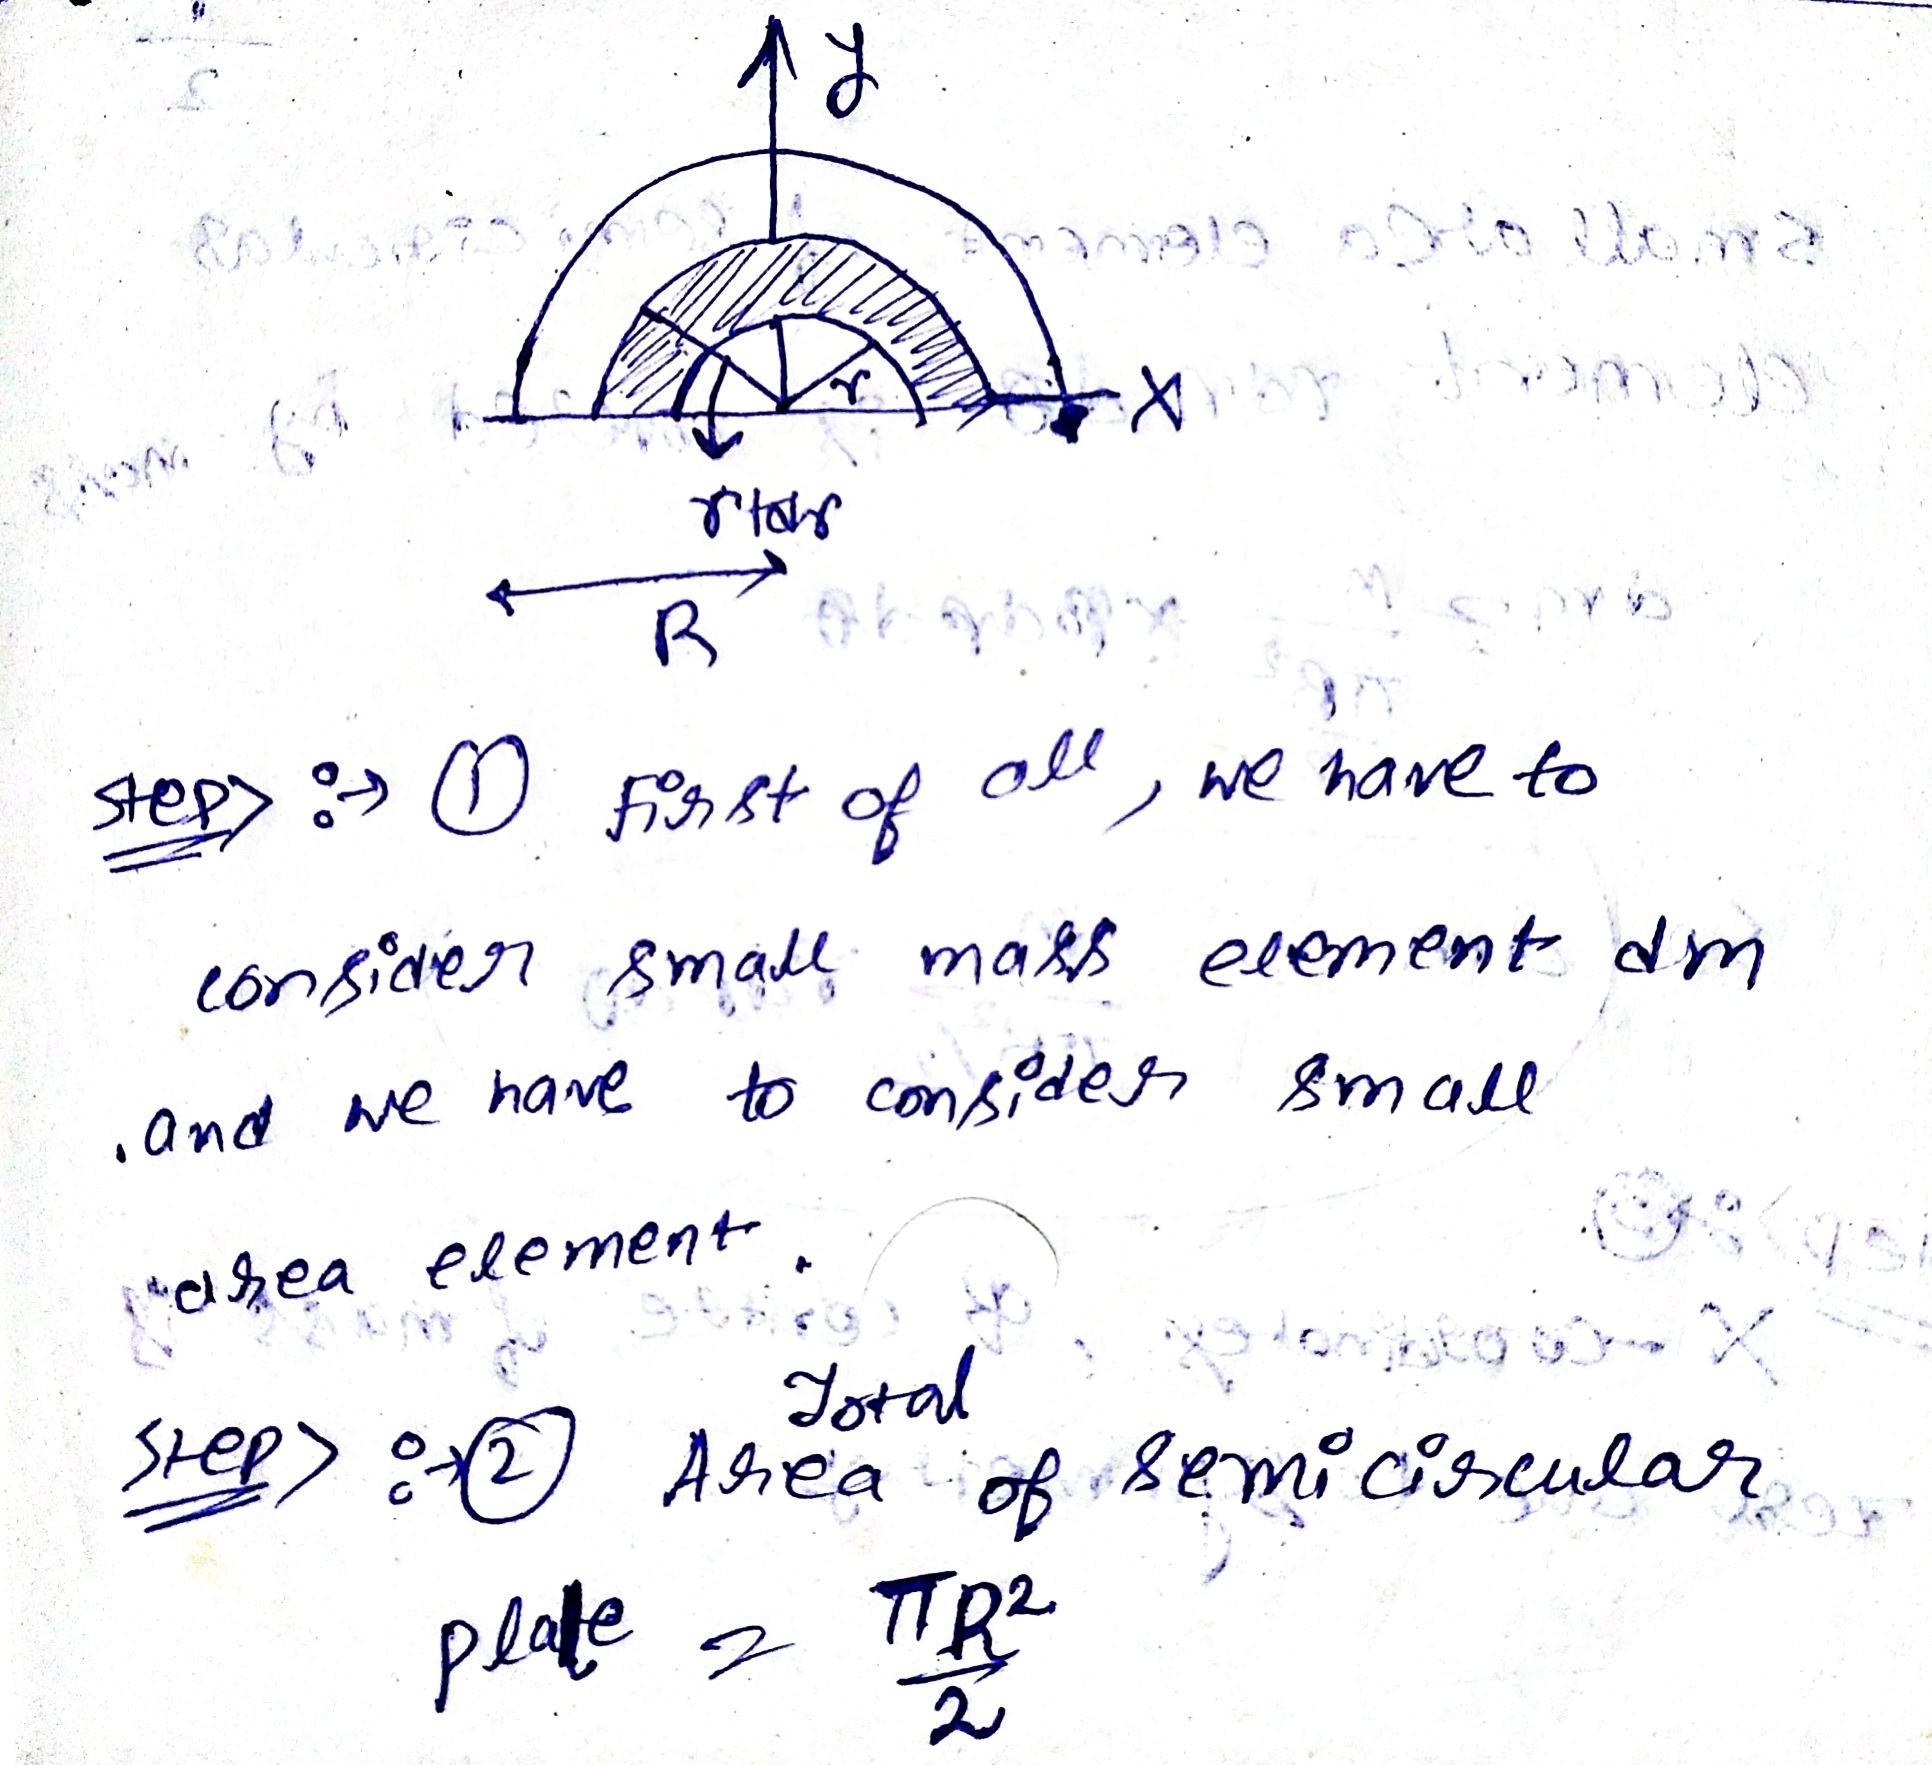 y
r
X
r+dr
R
Step> :→ ① First of all, we have to
consider small mass element dm
and we have to consider small
area element.
Total
Step> :→② Area of semicircular
plate = πR²/2